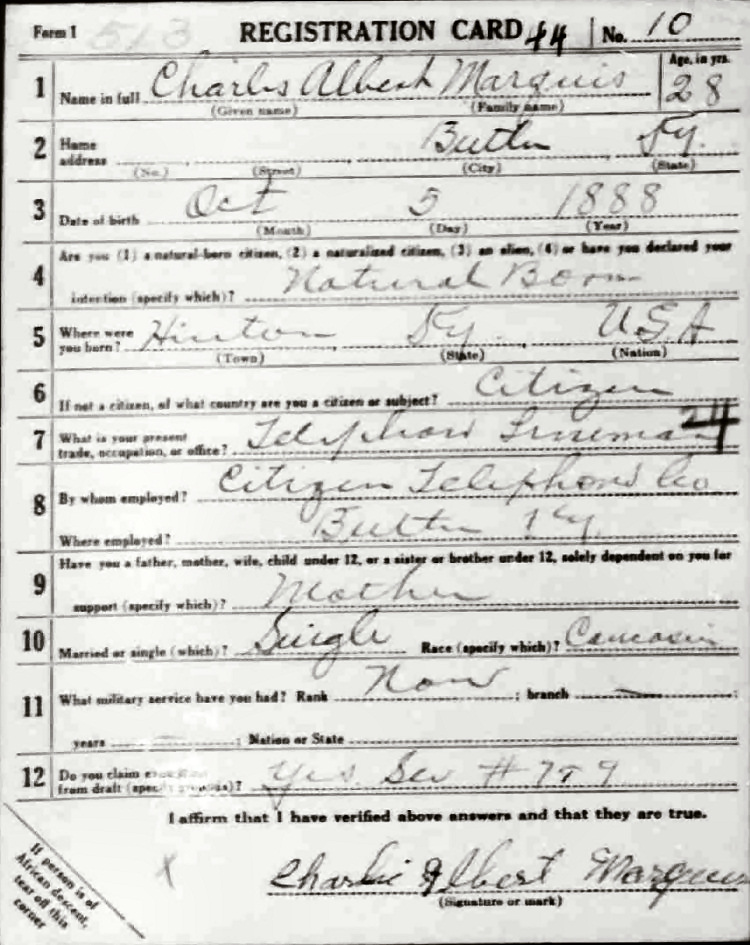 Form 1 513 REGISTRATION CARD 44 No. 10
1 Name in full Charles Albert Marquis Age, in yrs. 28
(Given name) (Family name)
2 Home address Butler Ky.
(No.) (Street) (City) (State)
3 Date of birth Oct 5 1888
(Month) (Day) (Year)
4 Are you (1) a natural-born citizen, (2) a naturalized citizen, (3) an alien, (4) or have you declared your
intention (specify which)? Natural Born
5 Where were you born? Hinton Ky. USA
(Town) (State) (Nation)
6 If not a citizen, of what country are you a citizen or subject? Citizen
7 What is your present trade, occupation, or office? Telephone Lineman 24
8 By whom employed? Citizen Telephone Co
Where employed? Butler Ky.
9 Have you a father, mother, wife, child under 12, or a sister or brother under 12, solely dependent on you for
support (specify which)? Mother
10 Married or single (which)? Single Race (specify which)? Caucasian
11 What military service have you had? Rank None ; branch ;
years ; Nation or State
12 Do you claim exemption
from draft (specify grounds)? Yes. See # 7 & 9
I affirm that I have verified above answers and that they are true.
Charlie Albert Marquis
(Signature or mark)
If person is of
African descent,
tear off this
corner